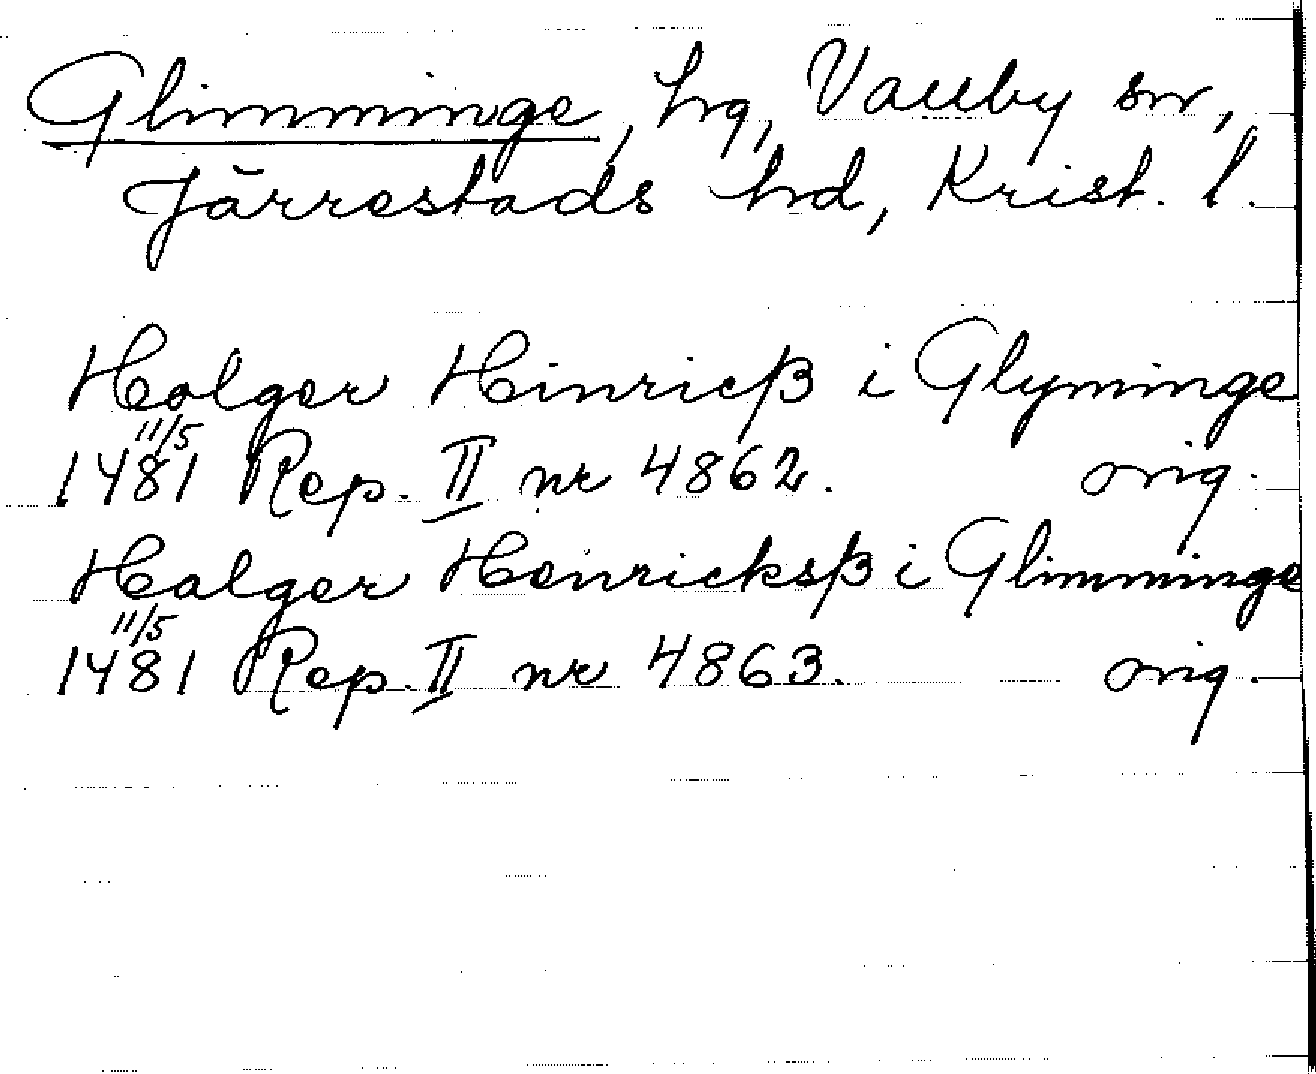 Glimminge, hrg, Vallby sn,
Järrestads hrd, Krist. l.
Holger Hinricß i Glyminge
11/5
1481 Rep. II nr 4862. orig.
Halger Henricksß i Glimminge
11/5
1481 Rep. II nr 4863. orig.